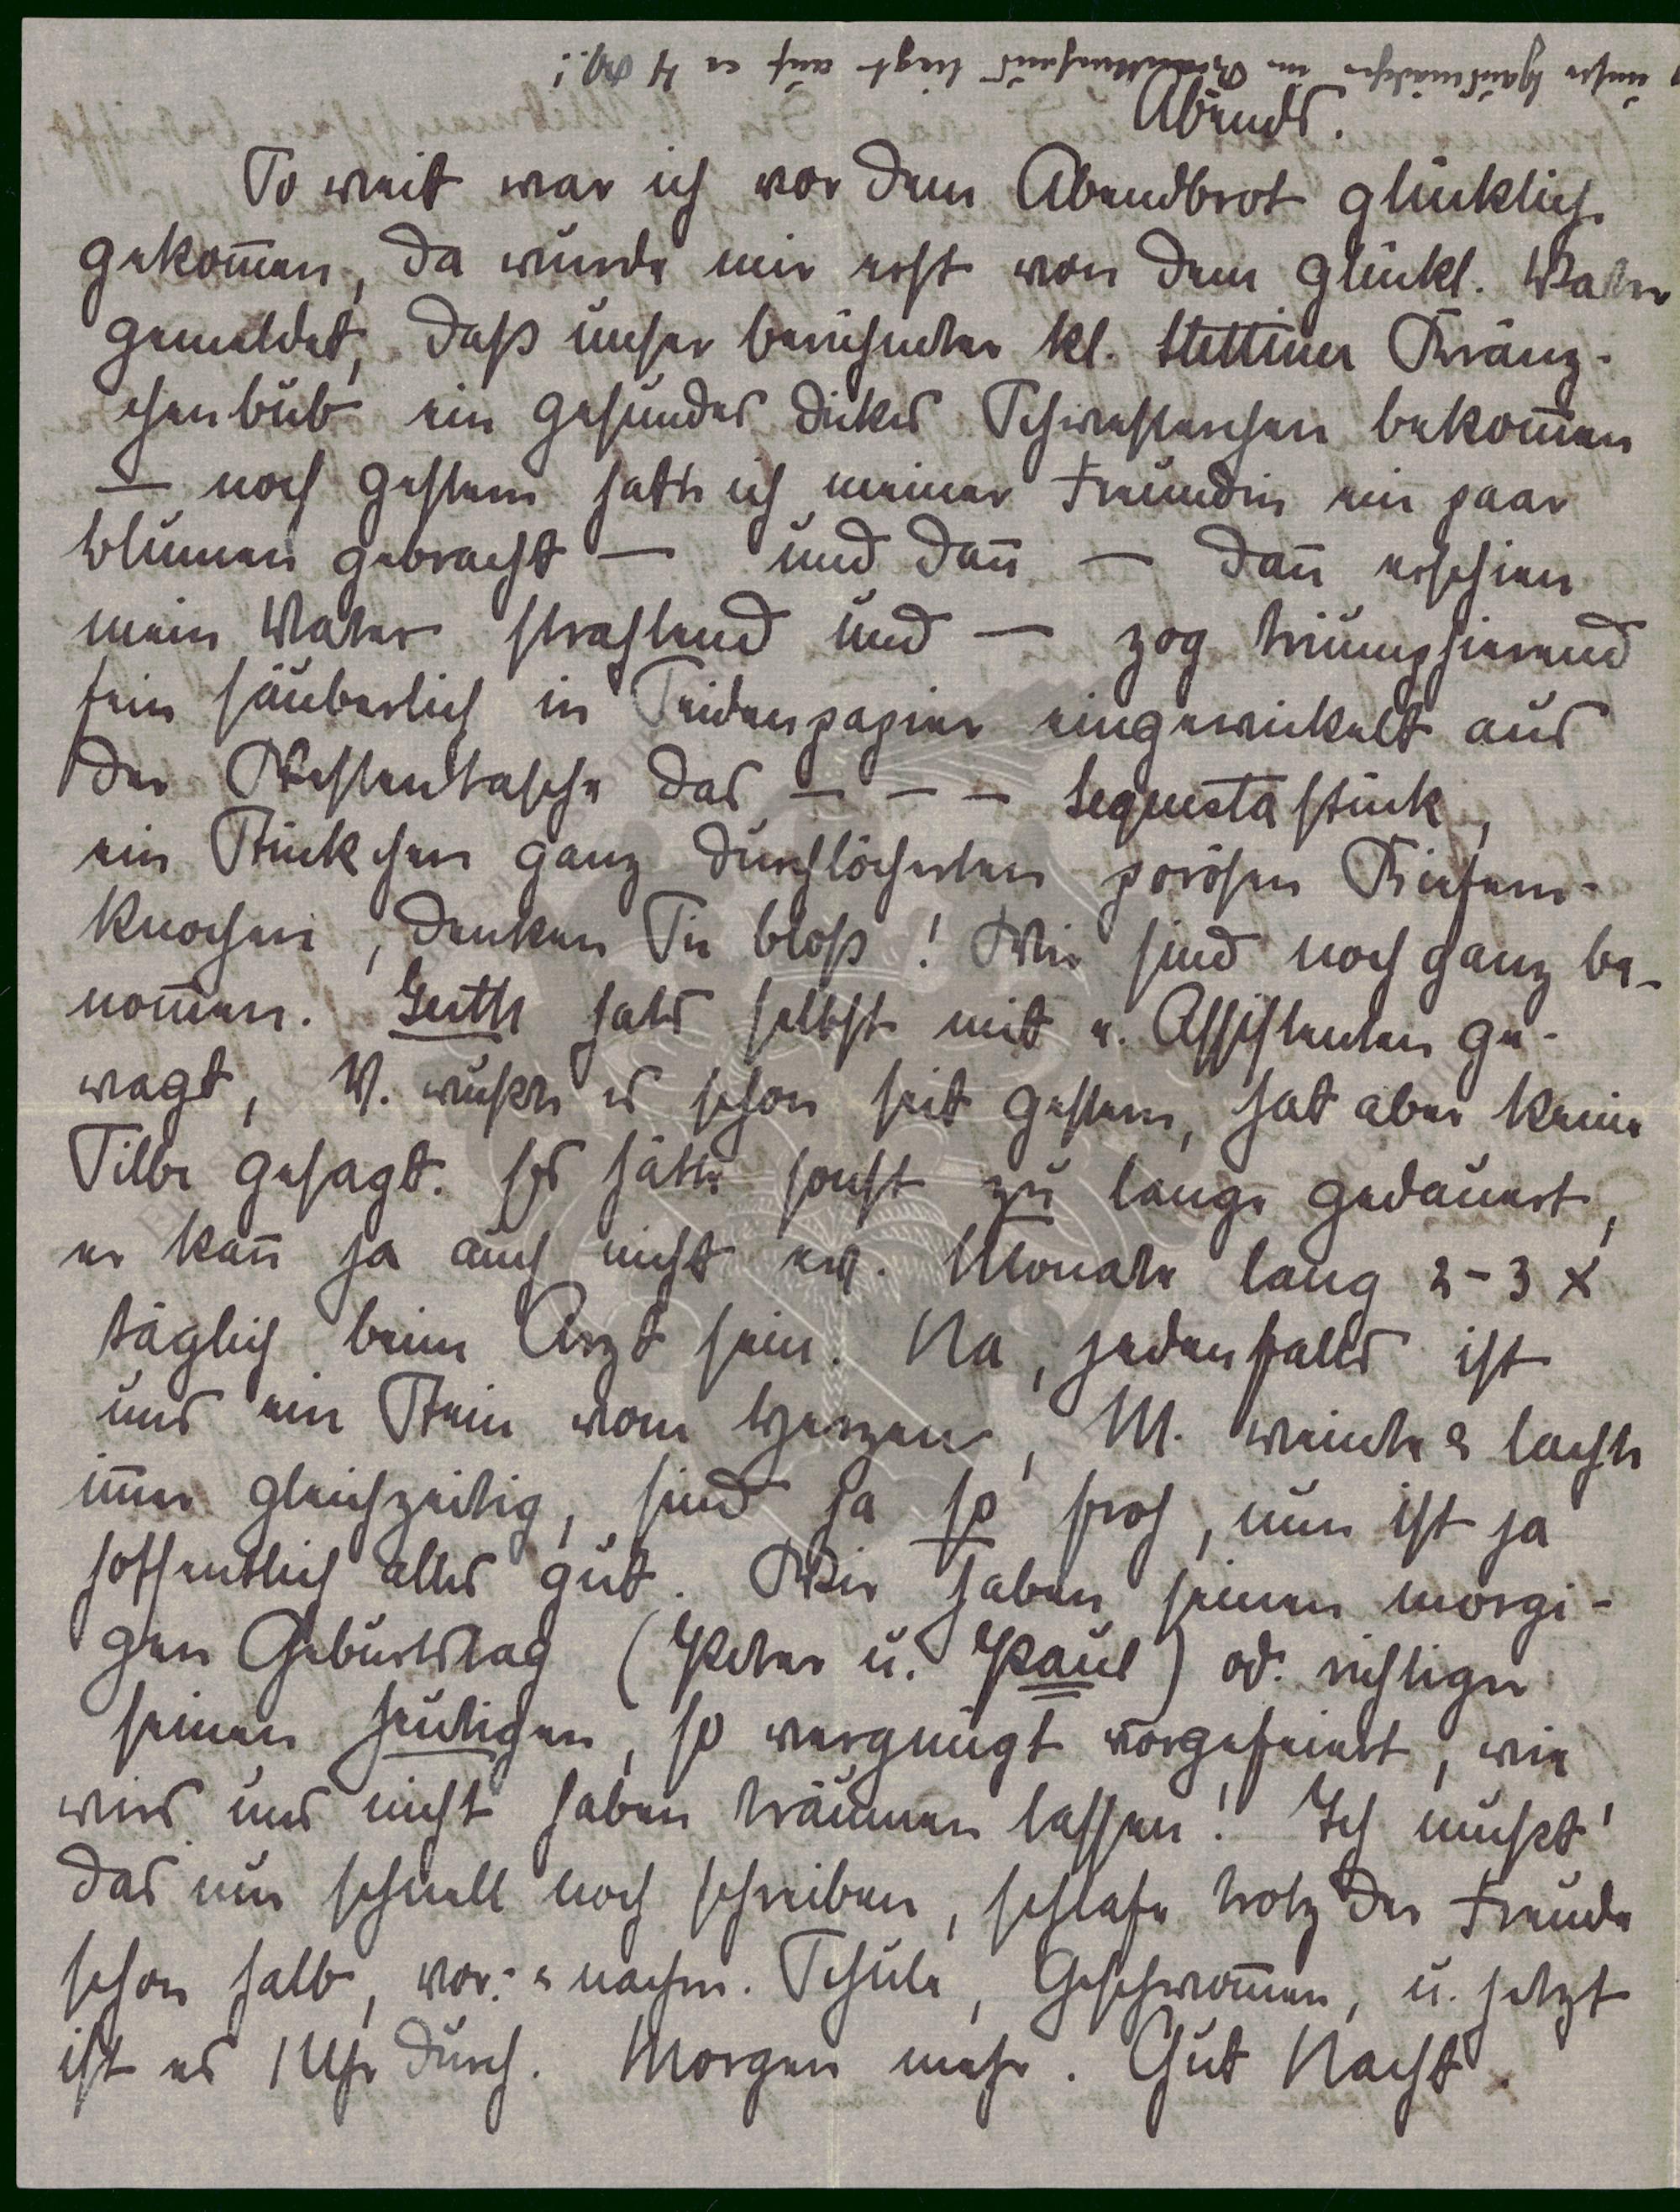 unser Hausmädchen im Krankenhaus liegt auf
Abends.
So weit war ich vor dem Abendbrot glücklich
gekom̅en, da wurde mir erst von dem glückl. Vater
gemeldet, daß unser berühmter kl. Stettiner Kränz-
chenbub ein gesundes dickes Schwesterchen bekom̅en
— noch gestern hatte ich meiner Freundin ein paar
Blumen gebracht — und dan̅ — dan̅ erschien
mein Vater strahlend und — zog triumphierend
fein säuberlich in Seidenpapier eingewickelt aus
der Westentasche das — — — Sequestastück,
ein Stückchen ganz durchlöcherten porösen Kiefern-
knochen, denken Sie bloß! Wir sind noch ganz be-
nom̅en. Guth hats selbst mit e. Assistenten ge-
wagt, V. wußte es schon seit gestern, hat aber keine
Silbe gesagt. Es hätte sonst zu lange gedauert,
er kan̅ ja auch nicht ev. Monate lang 2-3 x
täglich beim Arzt sein. Na, jedenfalls ist
uns ein Stein vom Herzen, M. weinte & lachte
im̅er gleichzeitig, sind ja so froh, nun ist ja
hoffentlich alles gut. Wir haben seinen morgi-
gen Geburtstag (Peter u. Paul) od. richtiger
seinen heutigen, so vergnügt vorgefeiert, wie
wirs uns nicht haben träumen lassen! Ich mußt'
das nur schnell noch schreiben, schlafe trotz der Freude
schon halb, vor- & nachm. Schule, Geschwom̅en, u. jetzt
ist es 1 Uhr durch. Morgen mehr. Gut Nacht.